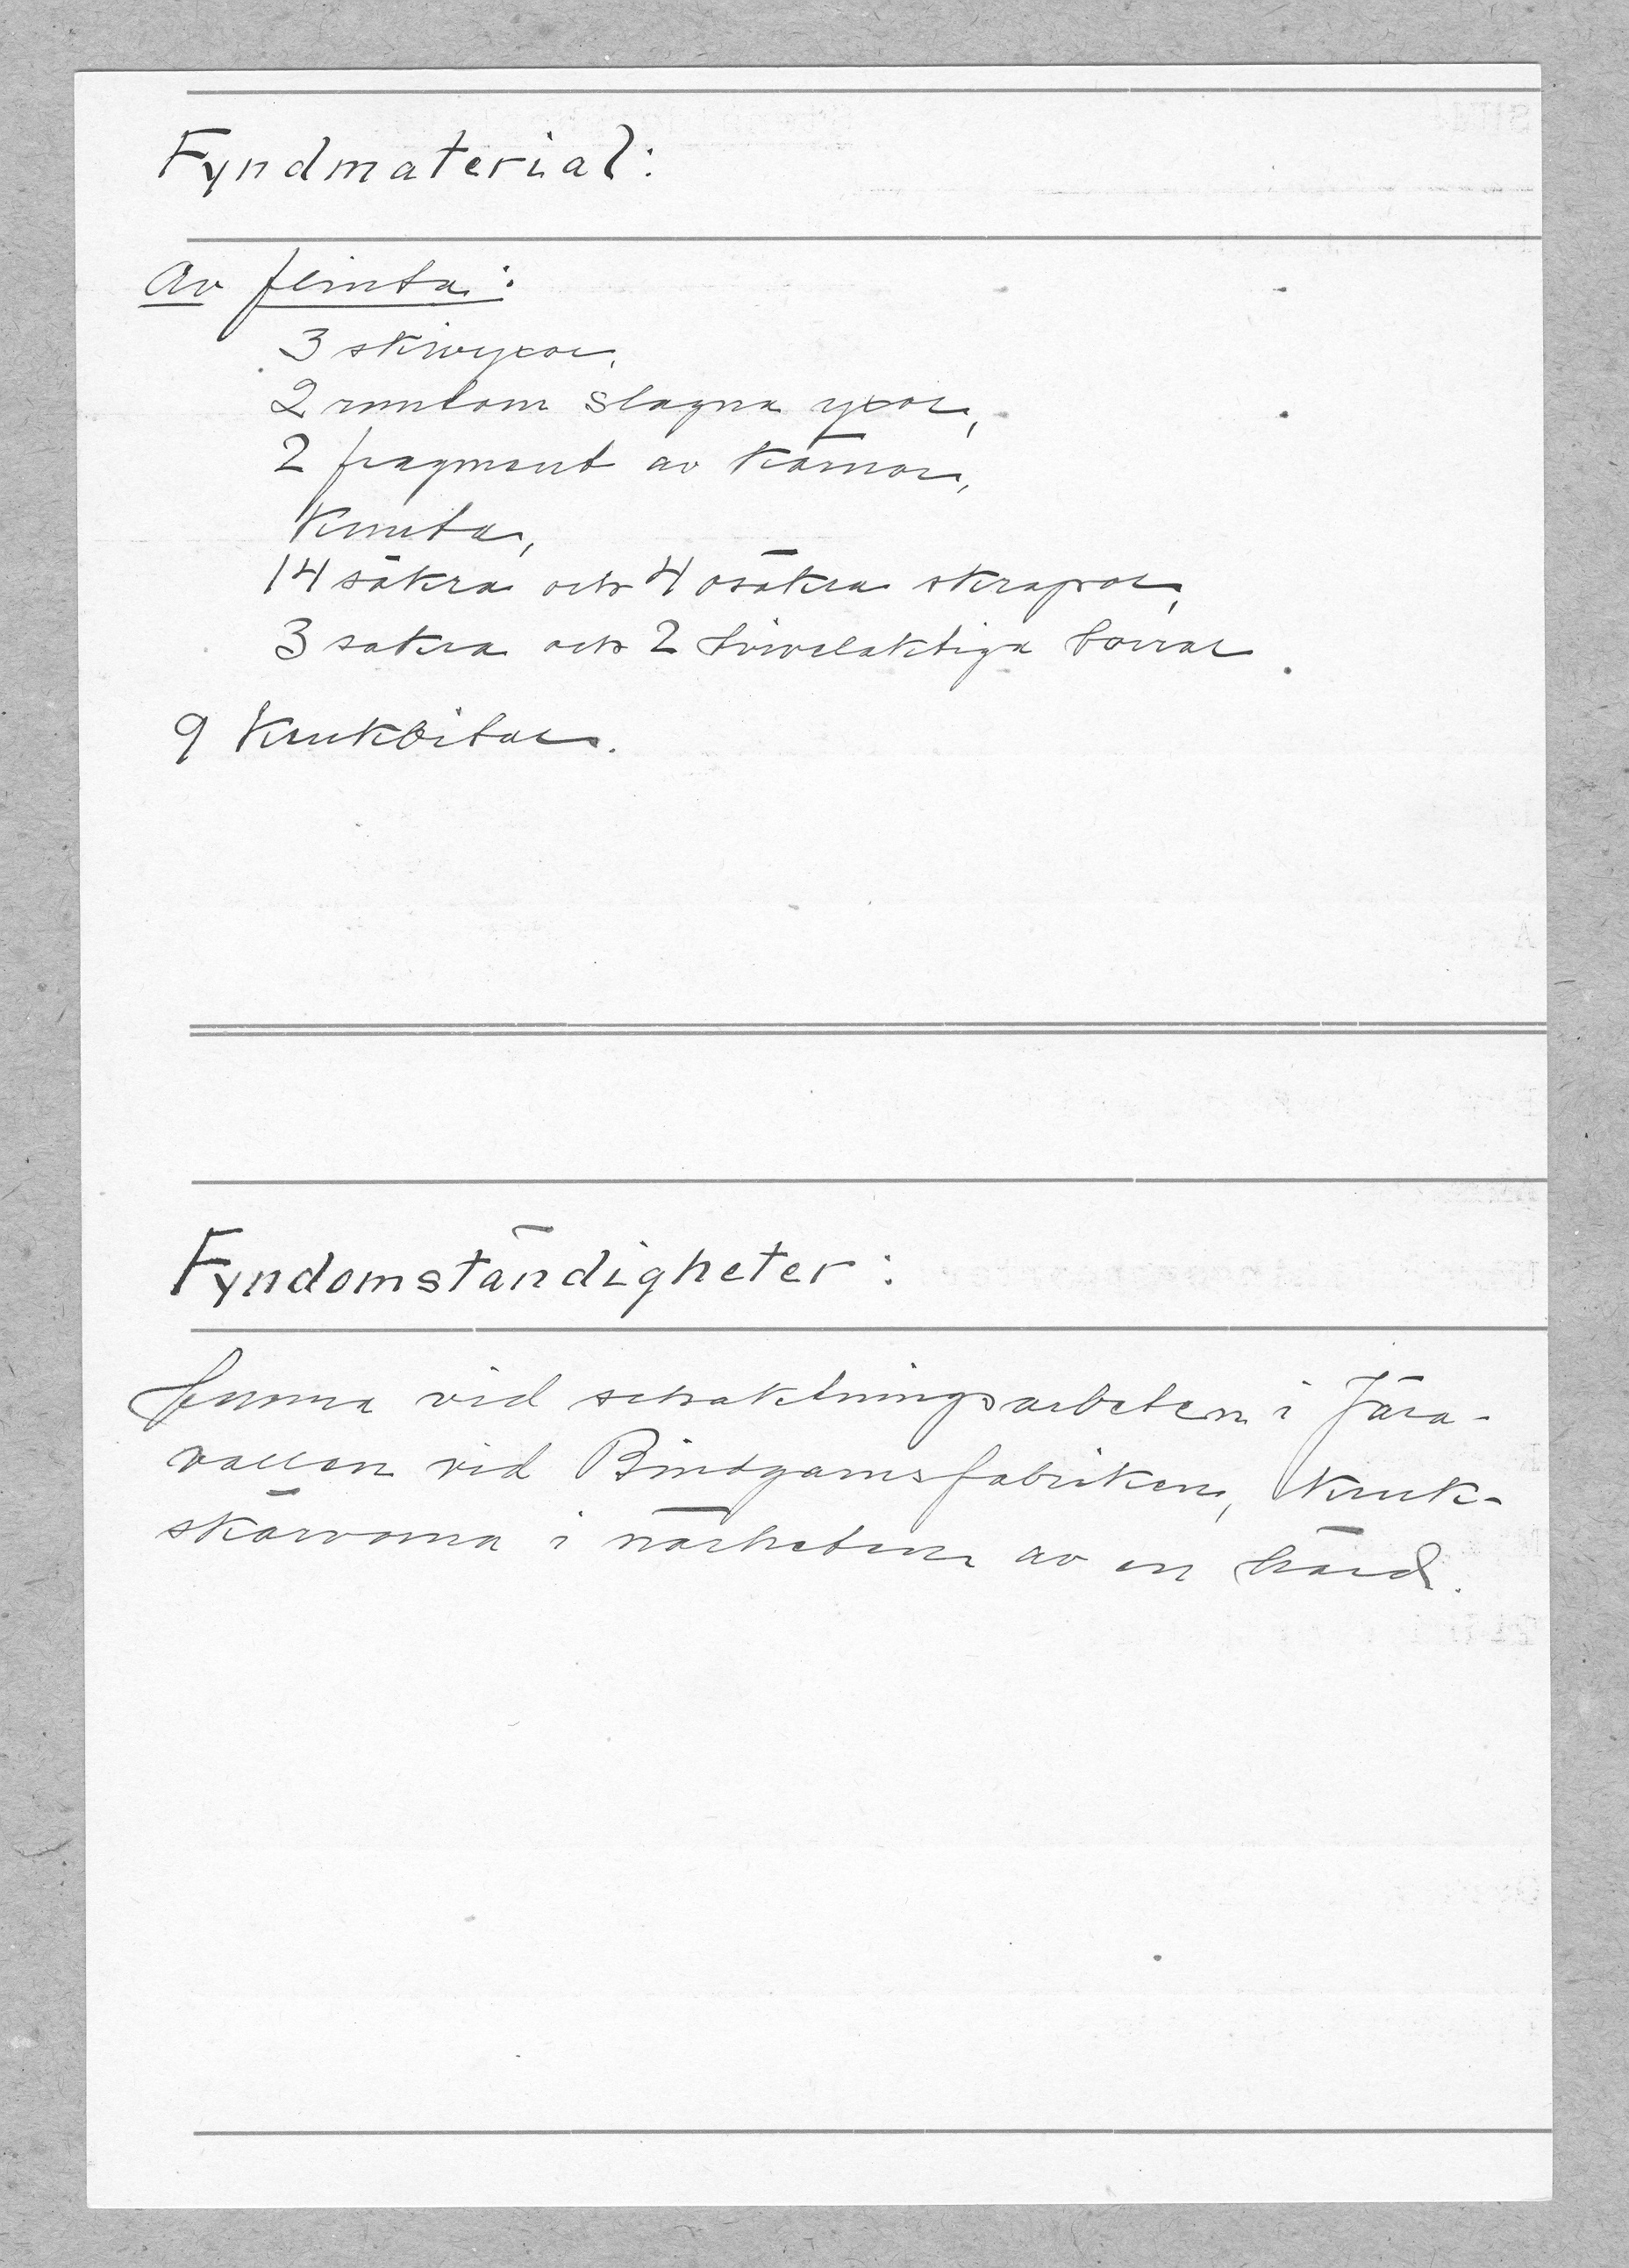 Fyndmaterial:
Av flinta:
3 skivyxor,
2 runtom slagna yxor,
2 fragment av kärnor,
Knuta,
14 säkra och 4 osäkra skrapor,
3 säkra och 2 tvivelaktiga borrar
9 krukbitar.
Fyndomständigheter:
funna vid schaktningsarbeten i Jära-
vallen vid Bindgarnsfabriken, kruk-
skärvorna i närheten av en härd.